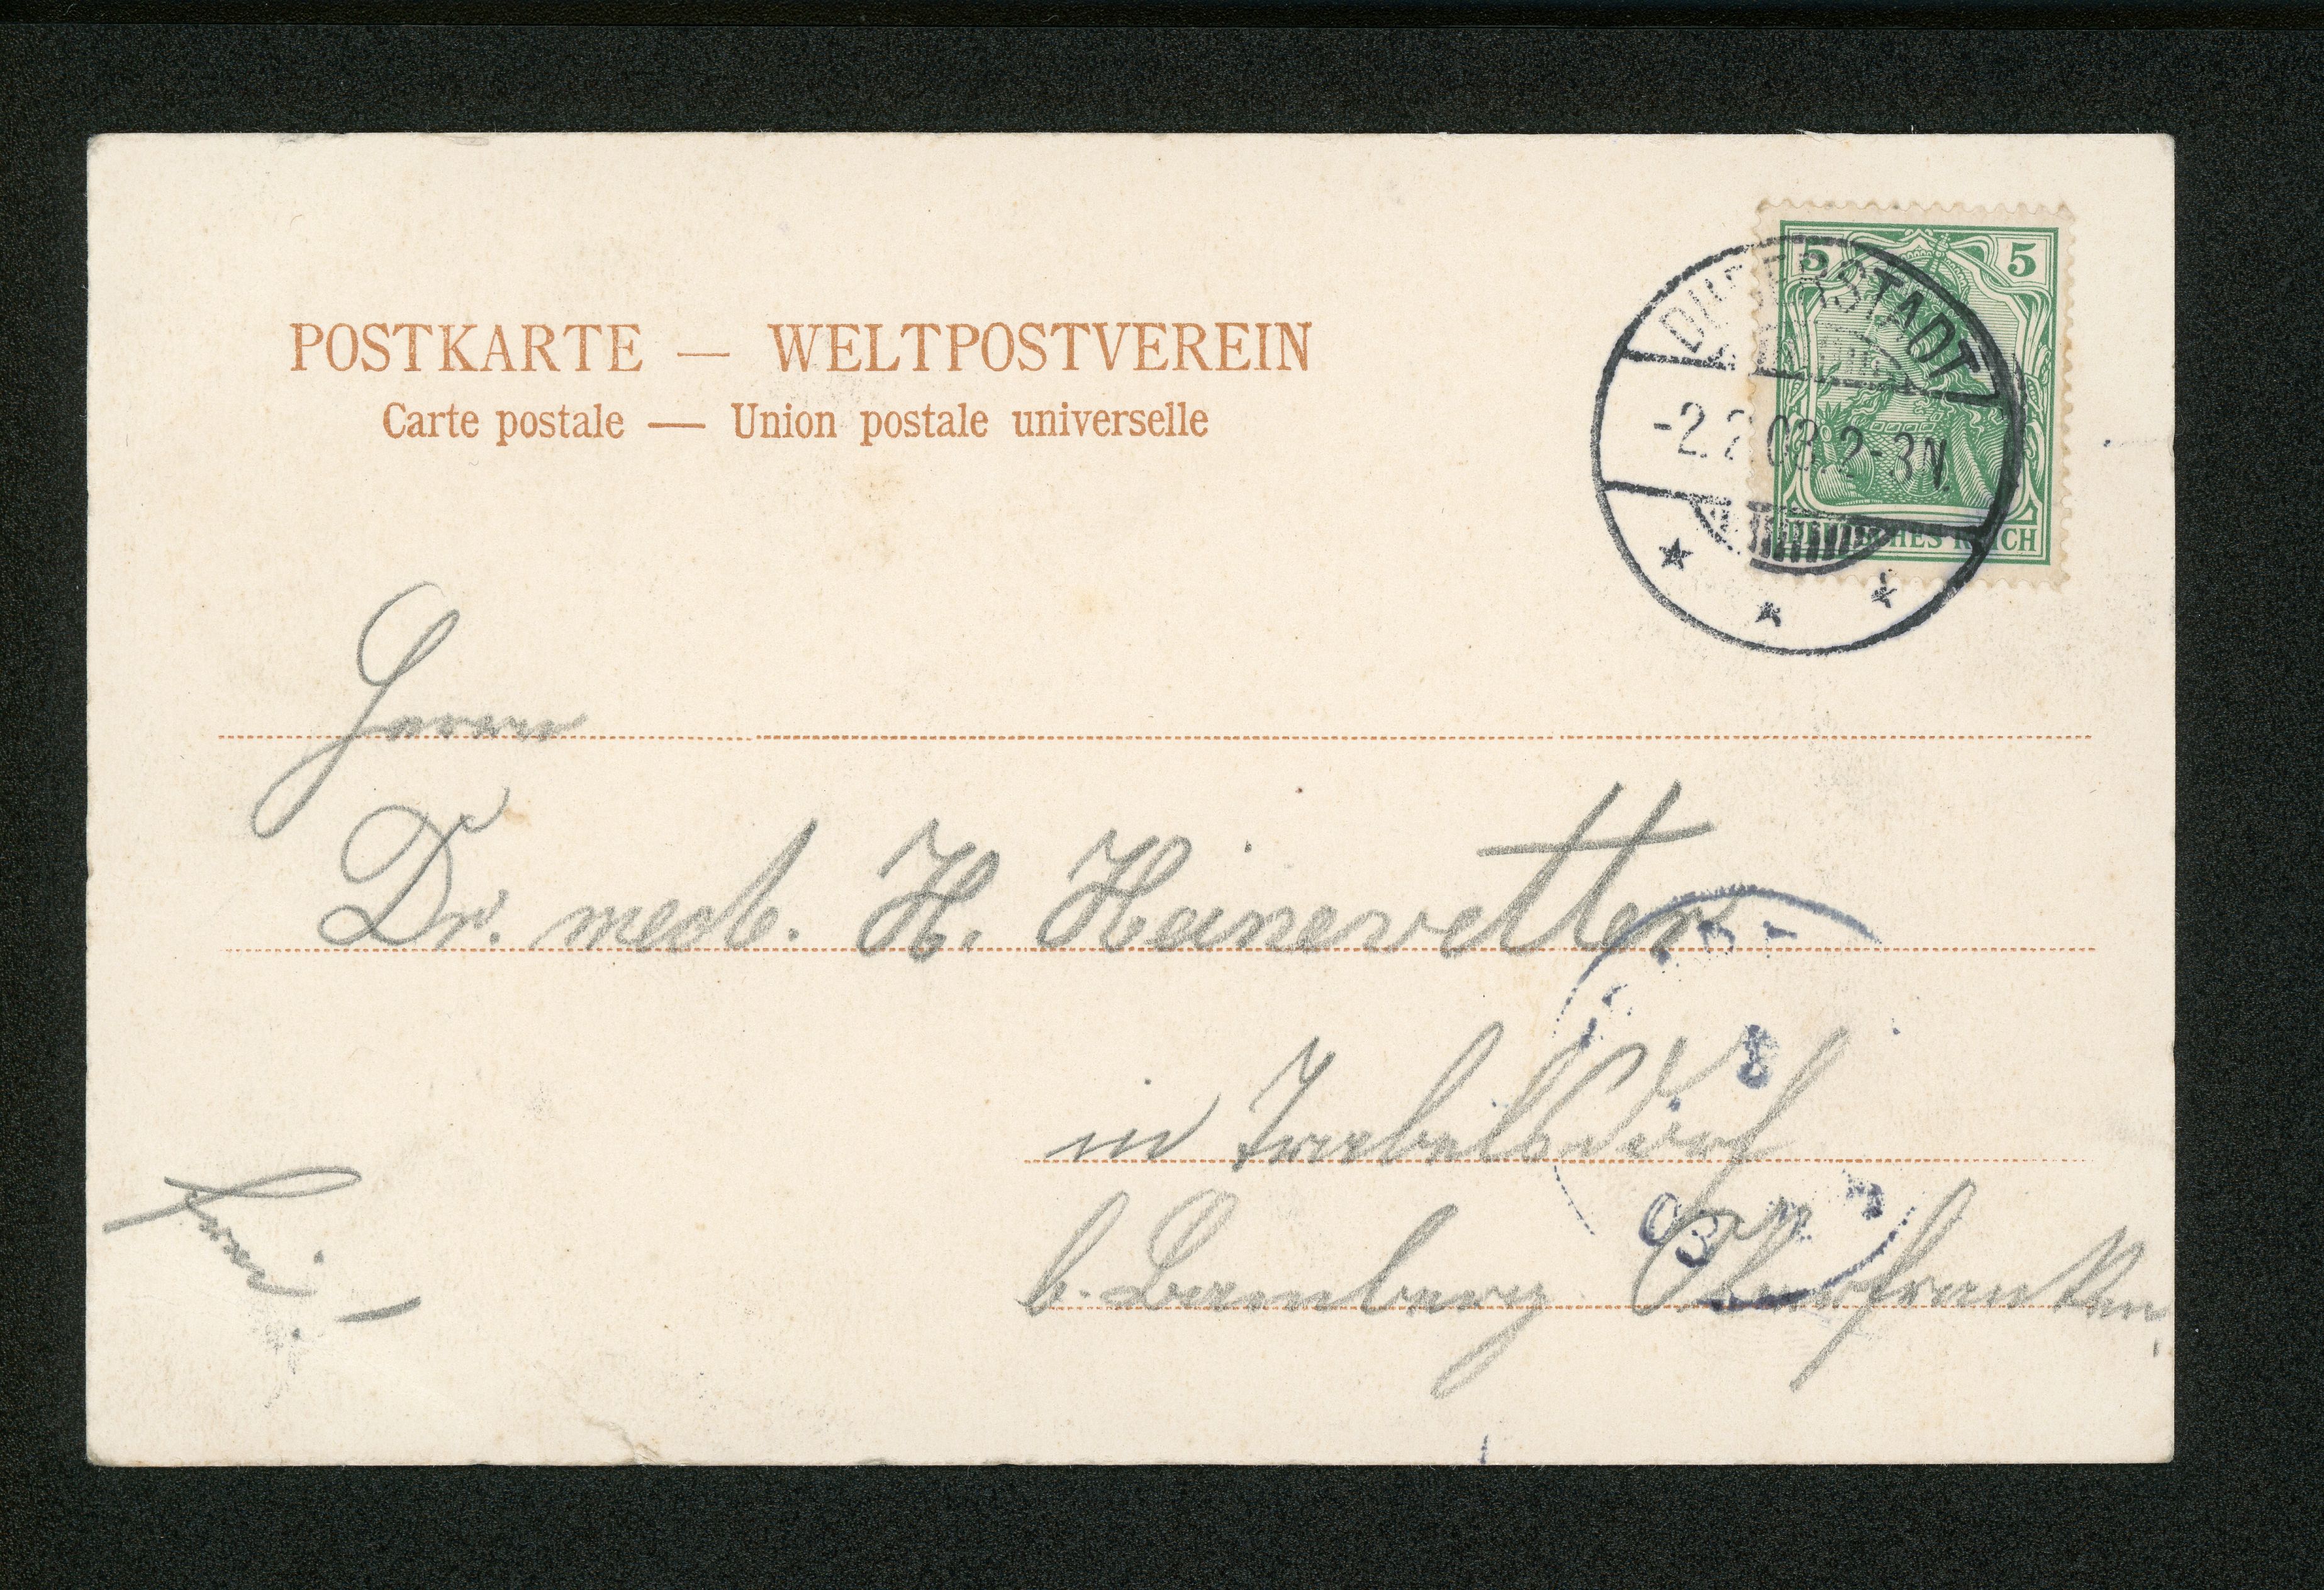 POSTKARTE — WELTPOSTVEREIN
Carte postale — Union postale universelle
5 5
DEUTSCHES REICH
DUDERSTADT
-2. 2 03. 2-3N.
Herrn
Dr. med. H. Heinevetter
in Trabelsdorf
b. Bamberg Oberfranken
frei.